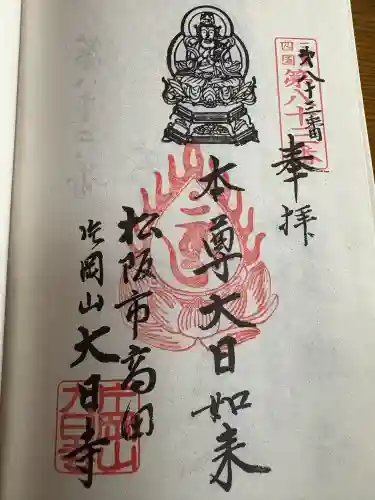 第八十三番
四国第八十三
奉拝
本尊大日如来
松阪市高田
片岡山大日寺
片岡山
大日寺